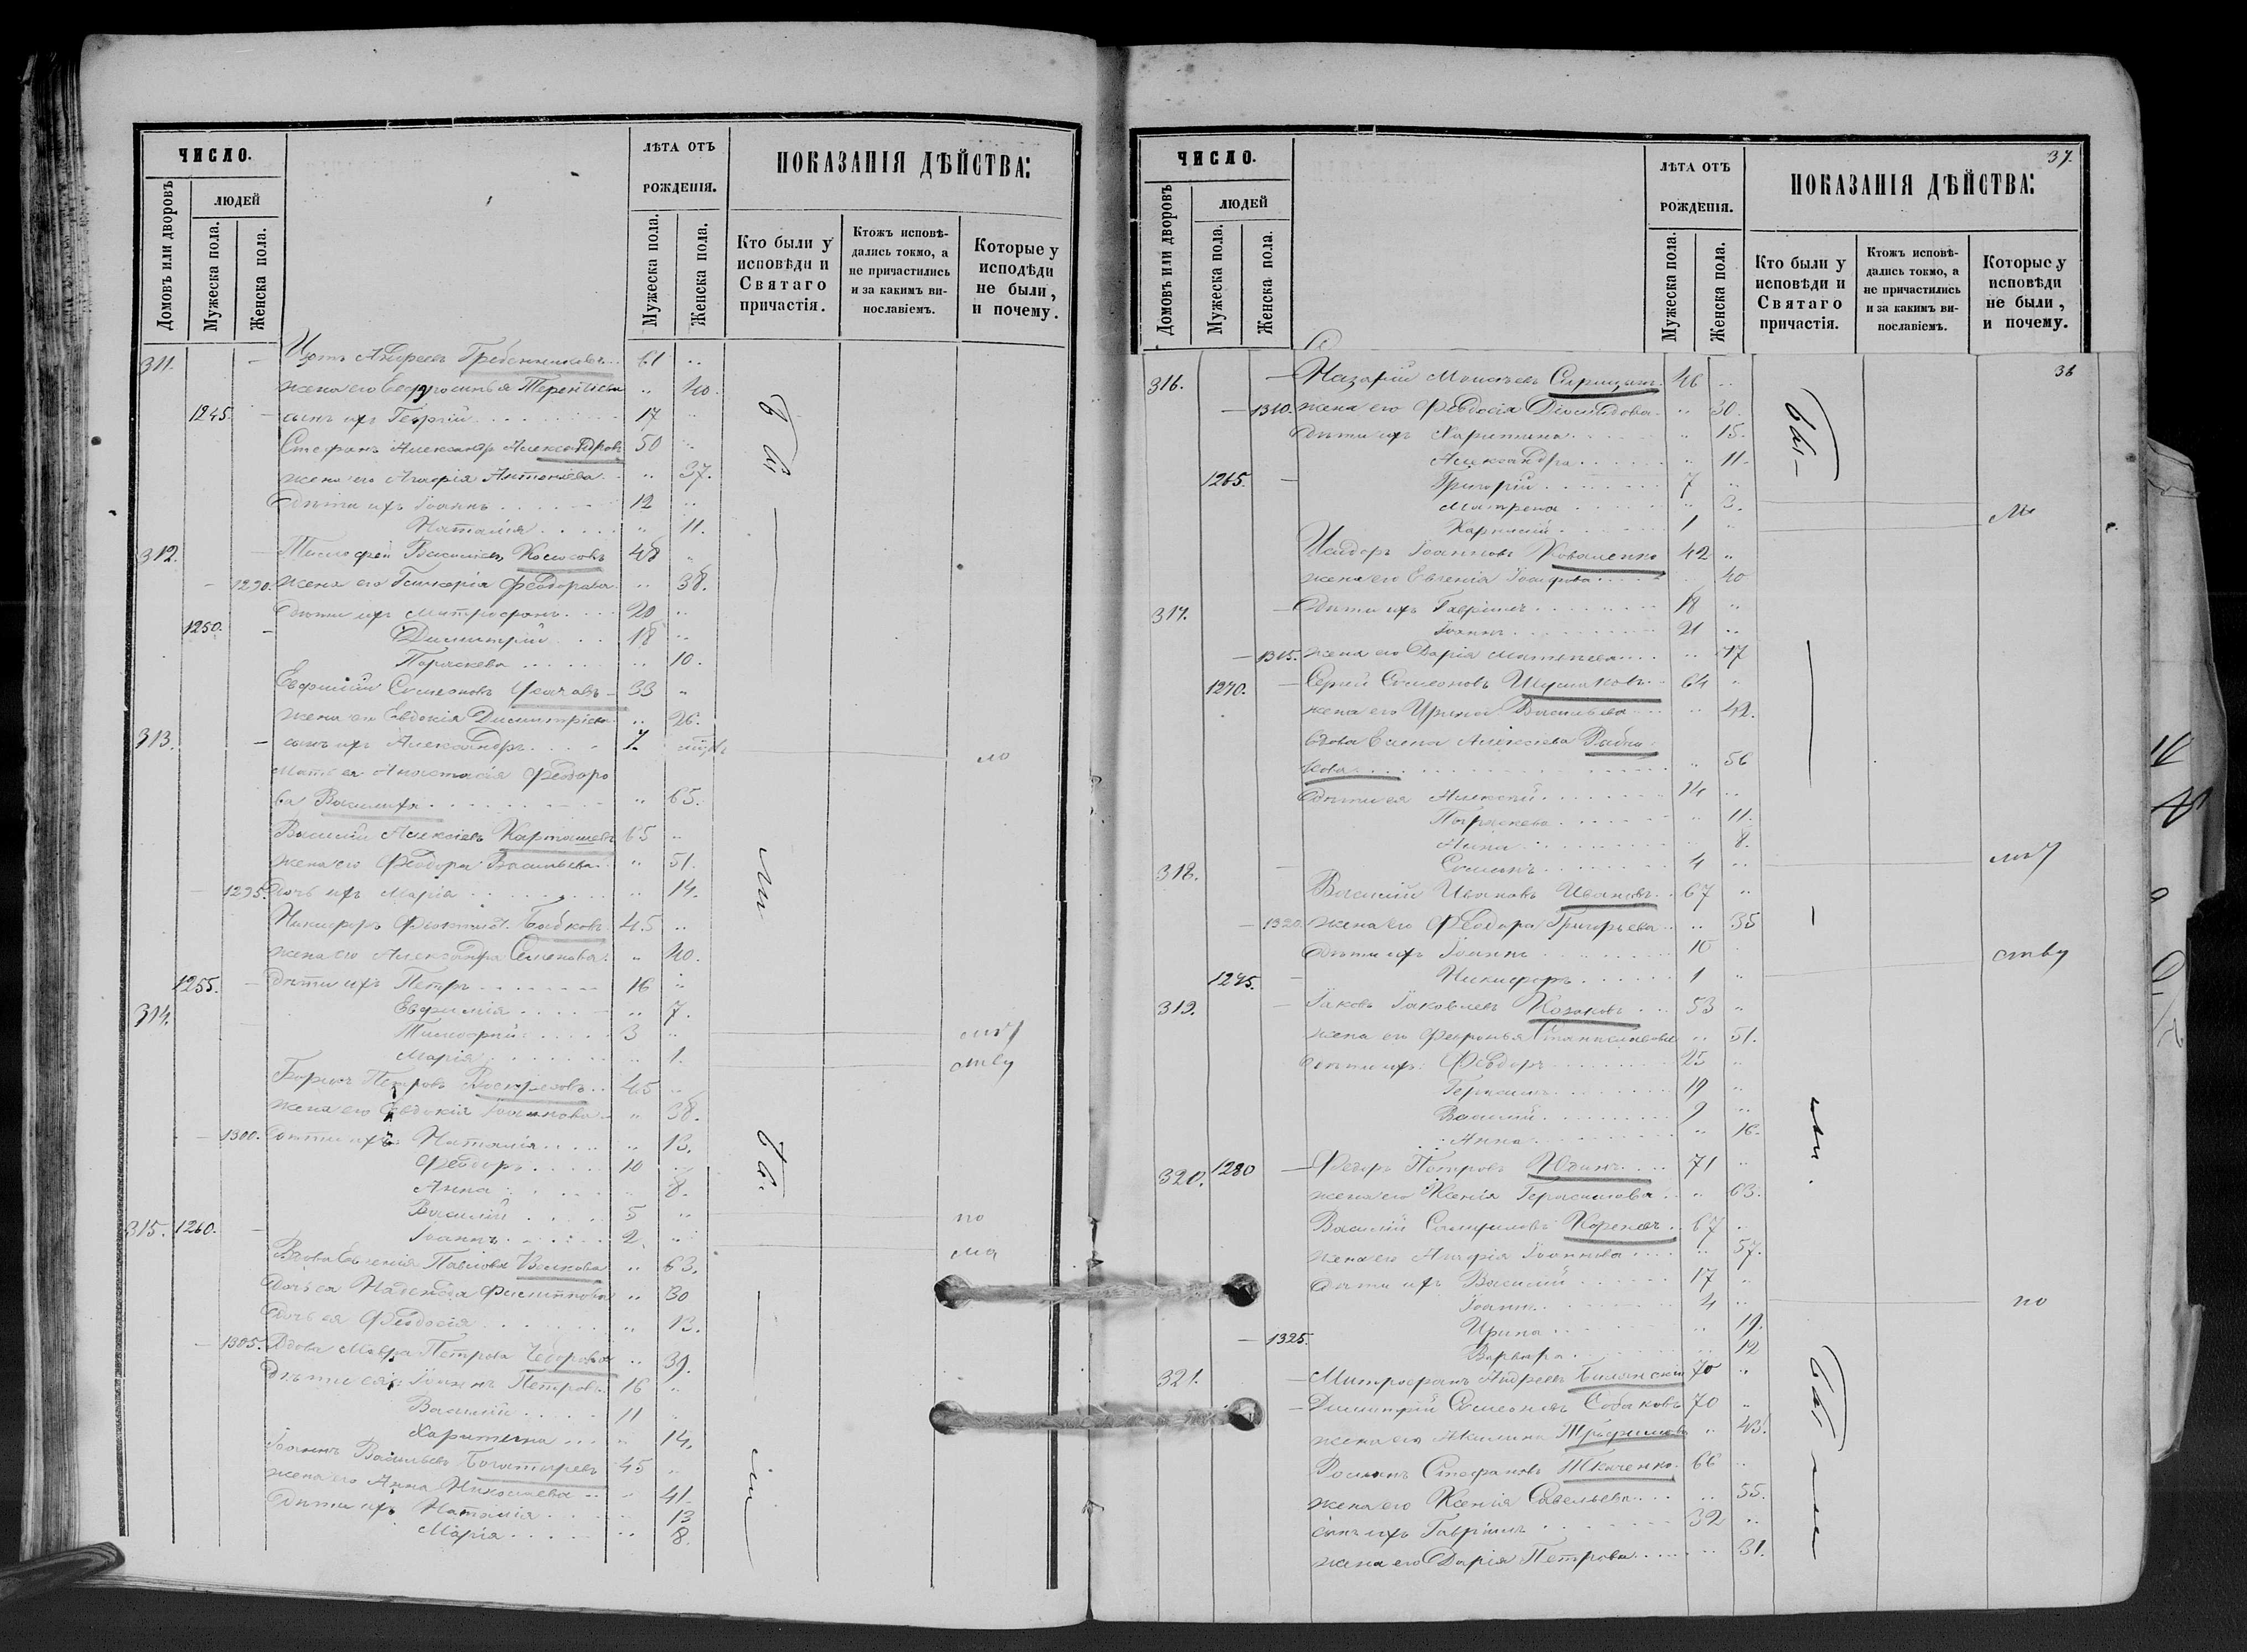 ЧИСЛО.
ЛѢТА ОТЪ
РОЖДЕНІЯ.
ПОКАЗАНІЯ ДѢЙСТВА:
Домовъ или дворовъ
ЛЮДЕЙ
Мужеска пола.
Женска пола.
Мужеска пола.
Женска пола.
Кто были у
исповѣди и
Святаго
причастія.
Ктожъ исповѣ-
дались токмо, а
не причастились
и за какимъ ви-
нословіемъ.
Которые у
исподѣди
не были,
и почему.
311. Андреевъ Гребенниковъ 61
жена его Евфросинья 40.
1245. сынъ ихъ Георгій 17
Стефанъ Александровъ 50
жена его Агафія Антоніева 37.
дѣти ихъ Іоаннъ 12
Наталія 11.
312. Тимофей Василіевъ Колосовъ 48
1290. жена его Гликерія Феодорова 38.
дѣти ихъ Митрофанъ 20
1250. Димитрій 18
Параскева 10.
Евфимій Симеоновъ 33
жена его Евдокія Димитріева 26.
313. сынъ ихъ Александръ 7. мо
Мать ея Анастасія Феодоро
ва 65.
Василій Алексіевъ Карташевъ 65
жена его Феодора Васильева 51.
1295. дочь ихъ Марія 14.
Никифоръ Бабковъ 45
жена его Александра Семенова 40.
1255. дѣти ихъ Петръ 16
Евфимія 7.
314. Тимофей 3
Марія 1. ству
Петровъ 45
жена его Евдокія Іоаннова 38.
1300. дѣти ихъ Наталія 13.
Феодоръ 10
Анна 8.
Василій 5 по
315. 1260. Іоаннъ 2. ма
Вдова Евгенія Павлова Волкова 63.
дочь ея Надежда Филиппова 30
дочь ея Феодосія 13.
1305. Вдова Мавра Петрова 39.
дѣти ея Іоаннъ Петровъ 16
Василій 11
Харитина 14.
Іоаннъ Васильевъ Богатыревъ 45
жена его Анна Николаева 41.
дѣти ихъ Наталія 13
Марія 8.
37.
ЧИСЛО.
ЛѢТА ОТЪ
РОЖДЕНІЯ.
ПОКАЗАНІЯ ДѢЙСТВА:
Домовъ или дворовъ
ЛЮДЕЙ
Мужеска пола.
Женска пола.
Мужеска пола.
Женска пола.
Кто были у
исповѣди и
Святаго
причастія.
Ктожъ исповѣ-
дались токмо, а
не причастились
и за какимъ ви-
нословіемъ.
Которые у
исповѣди
не были,
и почему.
36
316. Назарій 46
1310. жена его Феодосія Діомидова 30.
дѣти ихъ Харитина 15.
Александра 11.
1265. Григорій 7
Матрена 3.
Харлампій 1
Исидоръ Іоанновъ Коваленко 42
жена его Евгенія 40
317. дѣти ихъ Гавріилъ 18
Іоаннъ 21
1315. жена его Дарія Матвѣева 17
1270. Сергій Симеоновъ Шумаковъ 64
жена его Ирина Васильева 42.
Вдова Елена Алексіева Рябчи-
кова 56
дѣти ея Алексій 14
Параскева 11.
Анна 8.
318. Симеонъ 4
Василій Ивановъ Ивановъ 67
1320. жена его Феодора Григорьева 35
дѣти ихъ Іоаннъ 10 ству
1275. Никифоръ 1
319. Іаковъ Іаковлевъ Козаковъ 53
жена его Февронья 51.
дѣти ихъ Феодоръ 25
Герасимъ 19
Василій 9
Анна 16.
320. 1280 Федоръ Петровъ Юдинъ 71
жена его Ксенія Герасимова 63.
Василій Самуиловъ 67
жена его Агафія Іоаннова 57.
дѣти ихъ Василій 17
Іоаннъ 4 по
Ирина 19.
1325. Варвара 12
321. Митрофанъ Андреевъ 70
Димитрій Симеоновъ Собаковъ 70
жена его Акилина Трофимова 43.
Романъ Стефановъ Ткаченко 66
жена его Ксенія Савельева 55.
сынъ ихъ Гавріилъ 32
жена его Дарія Петрова 31.